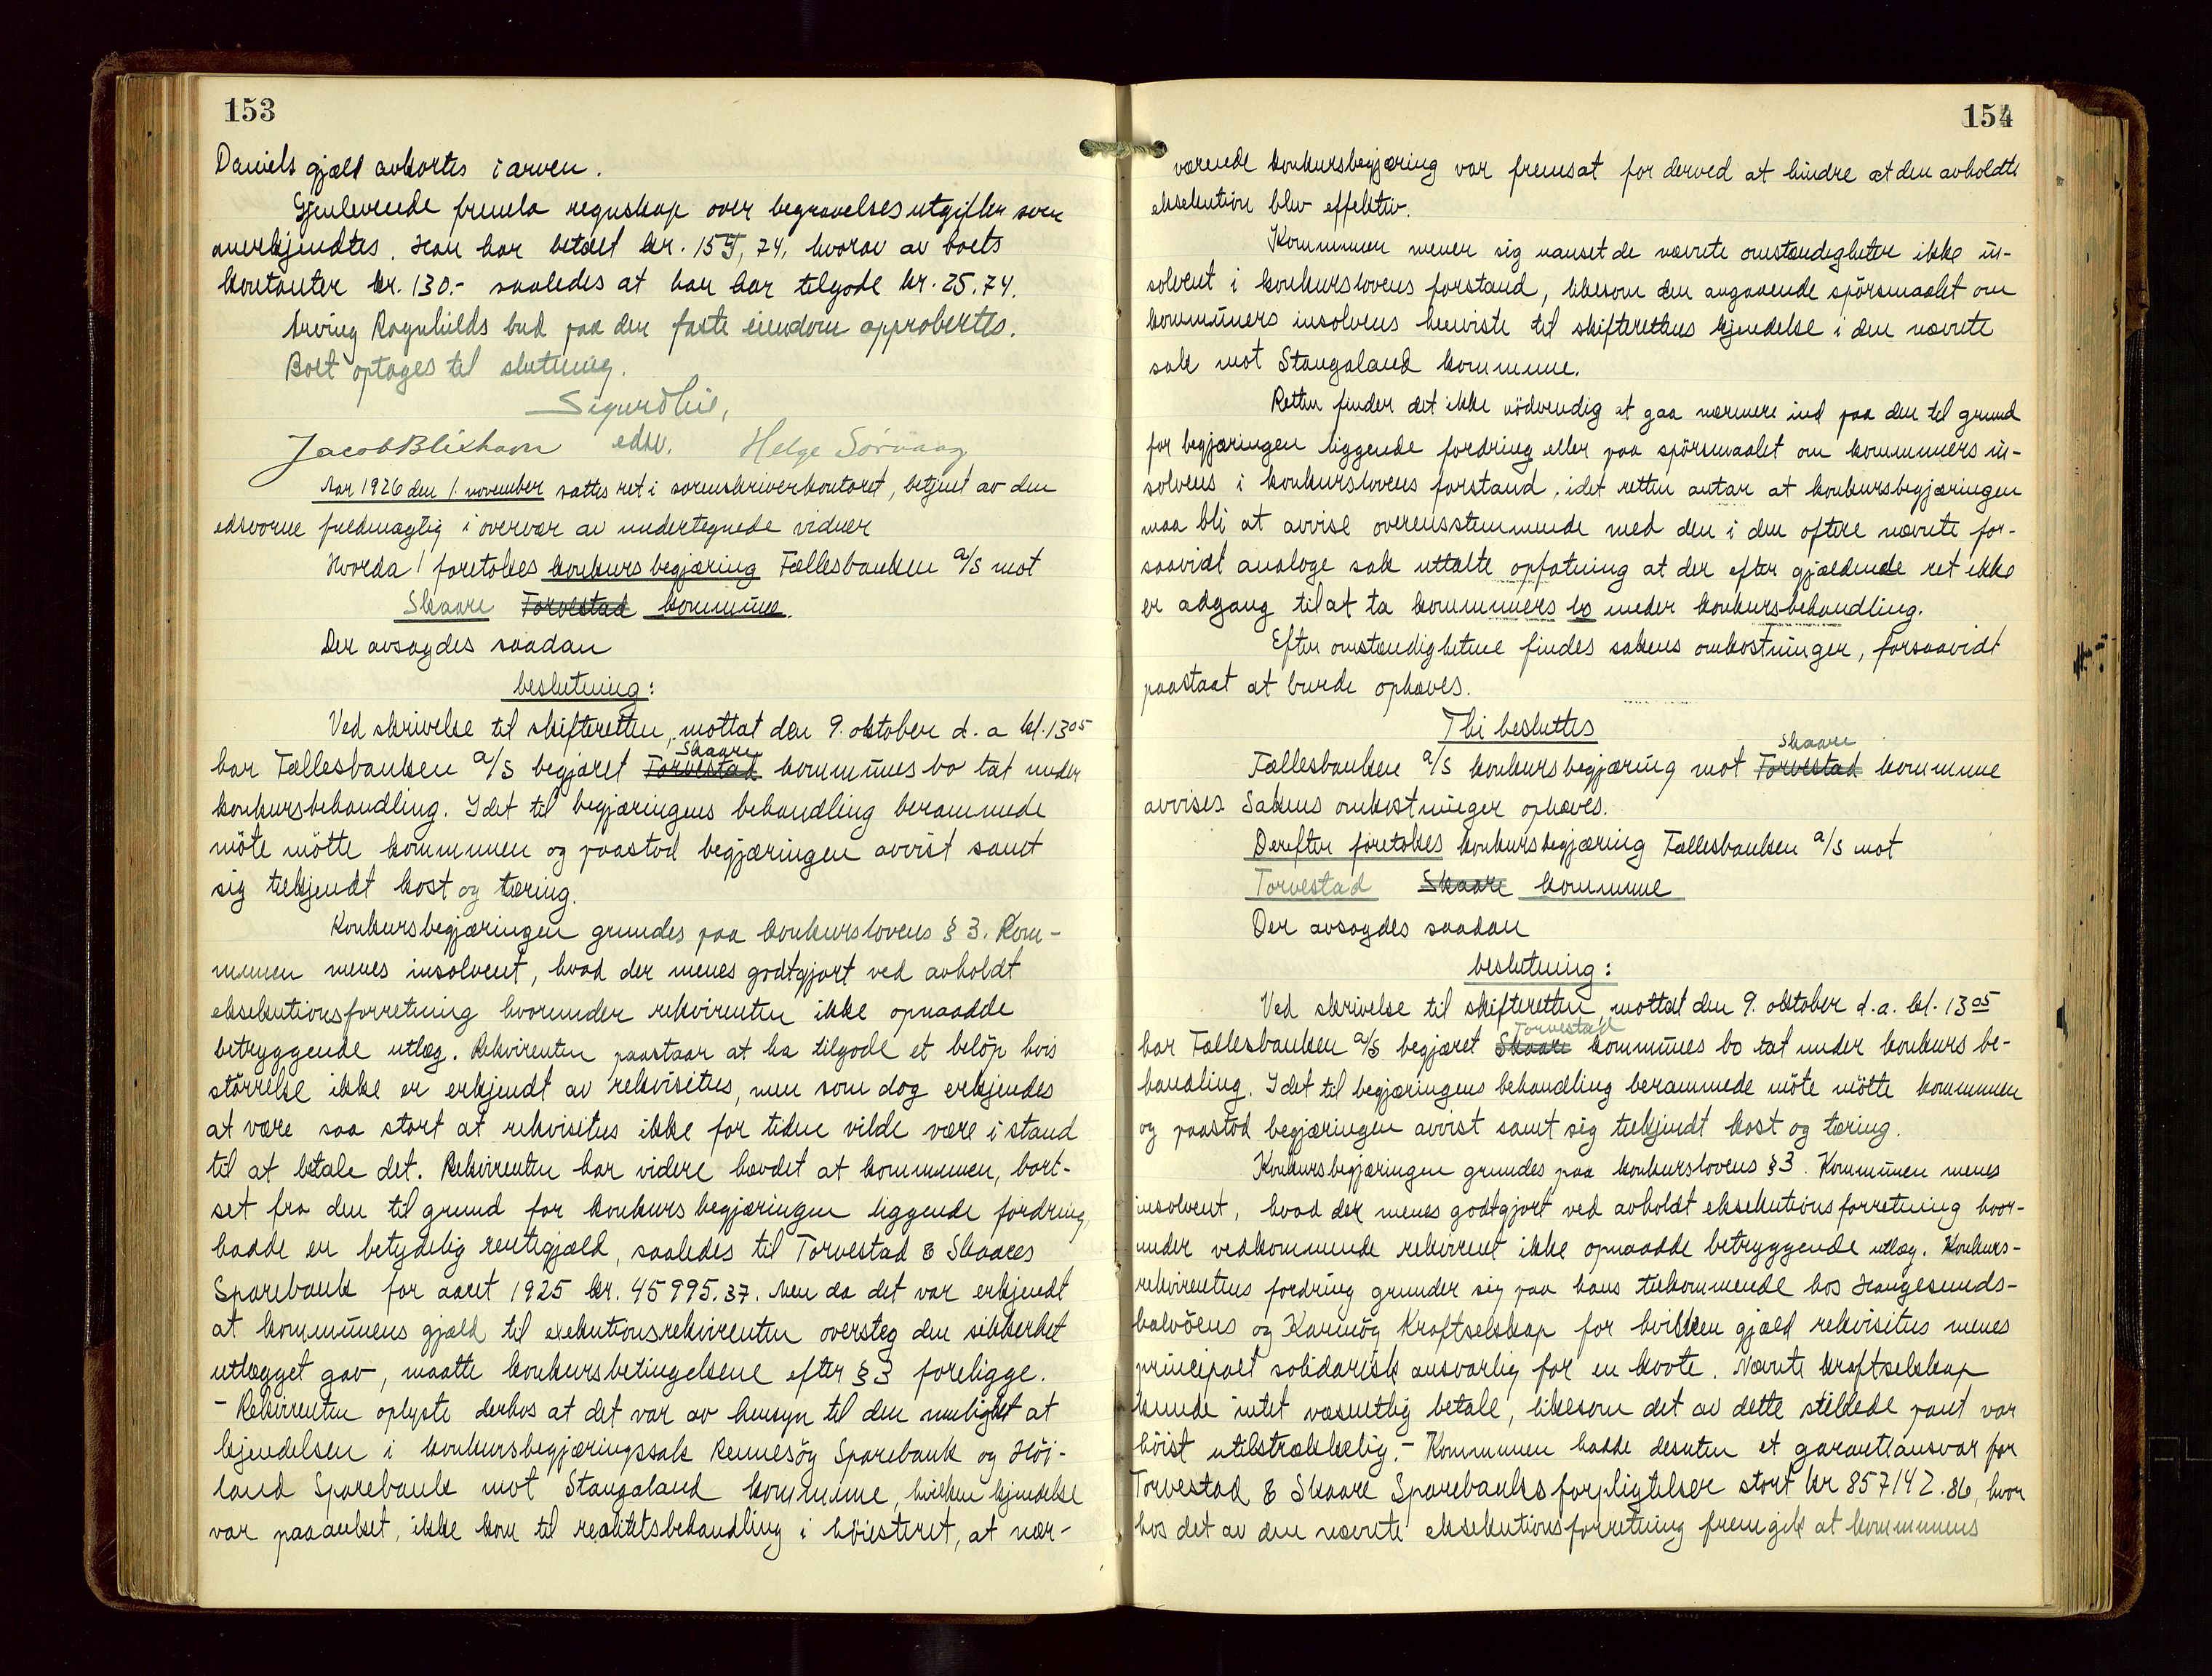 153
Daniels gjæld avkortes i arven.
Gjenlevende fremla regnskap over begravelsesutgifter som
anerkjendtes. Han har betalt kr. 155,74, hvorav av boets
kontanter kr. 130.- saaledes at han har tilgode kr. 25.74.
Arving Ragnhilds bud paa den faste eiendom approbertes.
Boet optages til slutning.
Sigurd
Jacob Blixhavn edsv. Helge Sørvaag
Aar 1926 den 1. november sattes ret i sorenskriverkontoret, betjent av den
edsvorne fuldmægtig i overvær av undertegnede vidner
Hvorda foretokes konkursbegjæring Fællesbanken A/S mot
Skaare Torvestad kommune.
Der avsagdes saadan
beslutning:
Ved skrivelse til skifteretten, mottat den 9. oktober d. a kl. 13 05
har Fællesbanken A/S begjæret Torvestad Skaare kommunes bo tat under
konkursbehandling. I det til begjæringens behandling berammede
møte møtte kommunen og paastod begjæringen avvist samt
sig tilkjendt kost og tæring.
Konkursbegjæringen grundes paa konkurslovens § 3. Kom-
munen menes insolvent, hvad der menes godtgjort ved avholdt
eksekutionsforretning hvorunder rekvirenten ikke opnaadde
betryggende utlæg. Rekvirenten paastaar at ha tilgode et beløp hvis
størrelse ikke er erkjendt av rekvisitus, men som dog erkjendes
at være saa stort at rekvisitus ikke for tiden vilde være i stand
til at betale det. Rekvirenten har videre hævdet at kommunen, bort-
set fra den til grund for konkursbegjæringen liggende fordring,
hadde en betydelig rentegjæld, saaledes til Torvestad & Skaares
Sparebank for aaret 1925 kr. 45995.37. Men da det var erkjendt
at kommunens gjæld til exekutionsrekvirenten oversteg den sikkerhet
utlægget gav, maatte konkursbetingelsene efter § 3 foreligge.
- Rekvirenten oplyste derhos at det var av hensyn til den mulighet at
kjendelsen i konkursbegjæringssak Rennesøy Sparebank og Høi-
land Sparebank mot Stangaland kommune, hvilken kjendelse
var paaanket, ikke kom til realitetsbehandling i høiesteret, at nær-
154
værende konkursbegjæring var fremsat for derved at hindre at den avholdte
eksekution blev effektiv.
Kommunen mener sig uanset de nævnte omstændigheter ikke in-
solvent i konkurslovens forstand, likesom den angaaende spørsmaalet om
kommuners insolvens henviste til skifterettens kjendelse i den nævnte
sak mot Stangaland kommune.
Retten finder det ikke nødvendig at gaa nærmere ind paa den til grund
for begjæringen liggende fordring eller paa spørsmaalet om kommuners in-
solvens i konkurslovens forstand, idet retten antar at konkursbegjæringen
maa bli at avvise overensstemmende med den i den oftere nævnte for-
saavidt analoge sak uttalte opfatning at der efter gjældende ret ikke
er adgang til at ta kommuners bo under konkursbehandling.
Efter omstændighetene findes sakens omkostninger, forsaavidt
paastaat at burde ophæves.
Thi besluttes
Fællesbanken A/S konkursbegjæring mot Torvestad Skaare kommune
avvises. Sakens omkostninger ophæves.
Derefter foretokes konkursbegjæring Fællesbanken A/S mot
Torvestad Skaare kommune
Der avsagdes saadan
beslutning:
Ved skrivelse til skifteretten, mottat den 9. oktober d.a. kl. 13 05
har Fællesbanken A/S begjæret Skaare Torvestad kommunes bo tat under konkurs be-
handling. I det til begjæringens behandling berammede møte møtte kommunen
og paastod begjæringen avvist samt sig tilkjendt kost og tæring.
Konkursbegjæringen grundes paa konkurslovens § 3. Kommunen menes
insolvent, hvad der menes godtgjort ved avholdt eksekutionsforretning hvor-
under vedkommende rekvirent ikke opnaadde betryggende utlæg. Konkurs-
rekvirentens fordring grunder sig paa hans tilkommende hos Haugesunds-
halvøens og Karmøy Kraftselskap for hvilken gjæld rekvisitus menes
principalt solidarisk ansvarlig for en kvote. Nævnte kraftselskap
kunde intet væsentlig betale, likesom det av dette stillede pant var
høist utilstrækkelig. - Kommunen hadde desuten et garantiansvar for
Torvestad & Skaare Sparebanks forpligtelser stort kr 857142.86, hvor
hos det av den nævnte eksekutionsforretning fremgik at kommunens